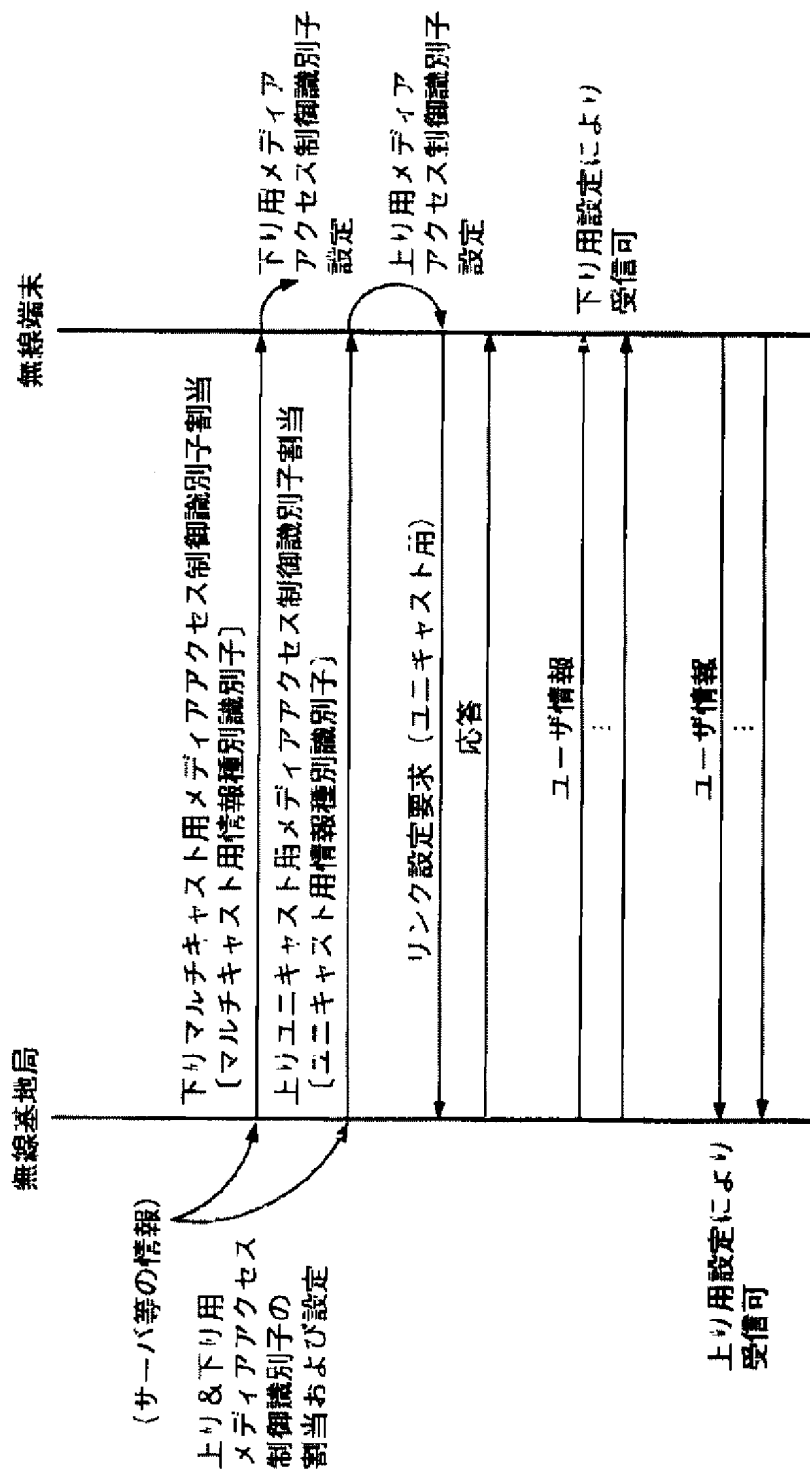 無線基地局
無線端末
(サーバ等の情報)
上り&下り用
メディアアクセス
制御識別子の
割当および設定
下りマルチキャスト用メディアアクセス制御識別子割当
〔マルチキャスト用情報種別識別子〕
下り用メディア
アクセス制御識別子
設定
上りユニキャスト用メディアアクセス制御識別子割当
〔ユニキャスト用情報種別識別子〕
上り用メディア
アクセス制御識別子
設定
リンク設定要求(ユニキャスト用)
応答
ユーザ情報
…
下り用設定により
受信可
ユーザ情報
…
上り用設定により
受信可